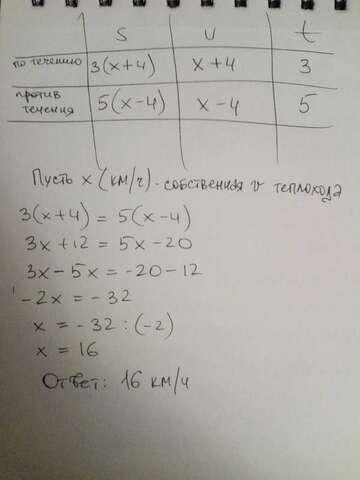 S U t
по течению 3(x+4) x+4 3
против течения 5(x-4) x-4 5
Пусть x (км/ч) - собственная v теплохода
3(x+4) = 5(x-4)
3x+12 = 5x-20
3x-5x = -20-12
-2x = -32
x = -32 : (-2)
x = 16
Ответ: 16 км/ч